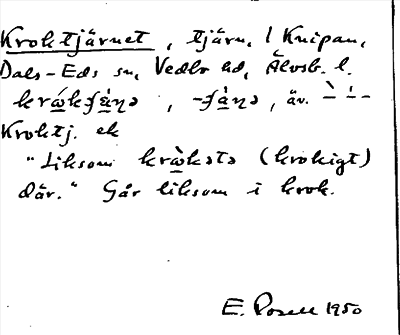 Kroktjärnet, tjärn, l Knipan,
Dals-Eds sn, Vedbo hd, Älvsb. l.
krὼkʃæ̀ṇə, -ʃà̱ṇə, äv. ` ´ -
Kroktj. ek
"Liksom krὼkətə (krokigt)
där." Går liksom i krok.
E. 1950